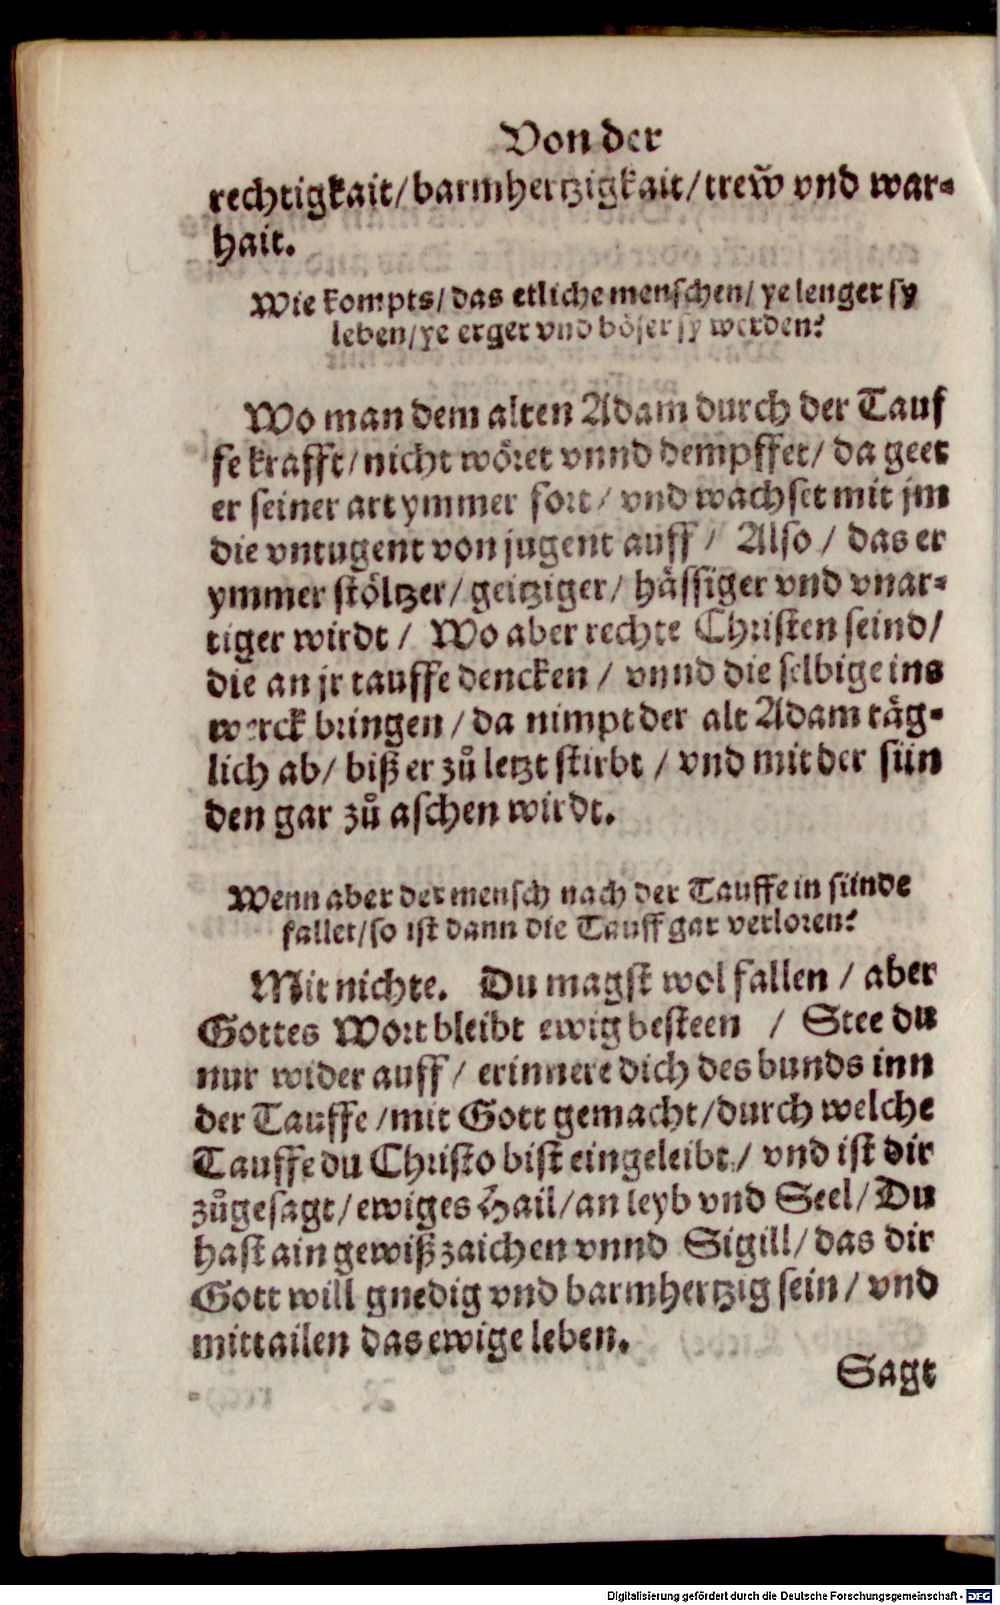 Von der
rechtigkait/ barmhertzigkait/ trew̃ vnd war-
hait.
Wie kompts/ das etliche menschen/ ye lenger sy
leben/ ye erger vnd böser sy werden?
Wo man dem alten Adam durch der Tauf
fe krafft/ nicht wöret vnnd dempffet/ da geet
er seiner art ymmer fort/ vnd wachset mit jm
die vntugent von jugent auff/ Also/ das er
ymmer stöltzer/ geitziger/ hässiger vnd vnar-
tiger wirdt/ Wo aber rechte Christen seind/
die an jr tauffe dencken/ vnnd die selbige ins
werck bringen/ da nimpt der alt Adam täg-
lich ab/ biß er zů letzt stirbt/ vnd mit der sün
den gar zů aschen wirdt.
Wenn aber der mensch nach der Tauffe in sünde
fallet/ so ist dann die Tauff gar verloren?
Mit nichte. Du magst wol fallen/ aber
Gottes Wort bleibt ewig besteen / Stee du
nur wider auff/ erinnere dich des bunds inn
der Tauffe/ mit Gott gemacht/ durch welche
Tauffe du Christo bist eingeleibt/ vnd ist dir
zůgesagt/ ewiges Hail/ an leyb vnd Seel/ Du
hast ain gewiß zaichen vnnd Sigill/ das dir
Gott will gnedig vnd barmhertzig sein/ vnd
mittailen das ewige leben.
Sagt
Digitalisierung gefördert durch die Deutsche Forschungsgemeinschaft - DFG